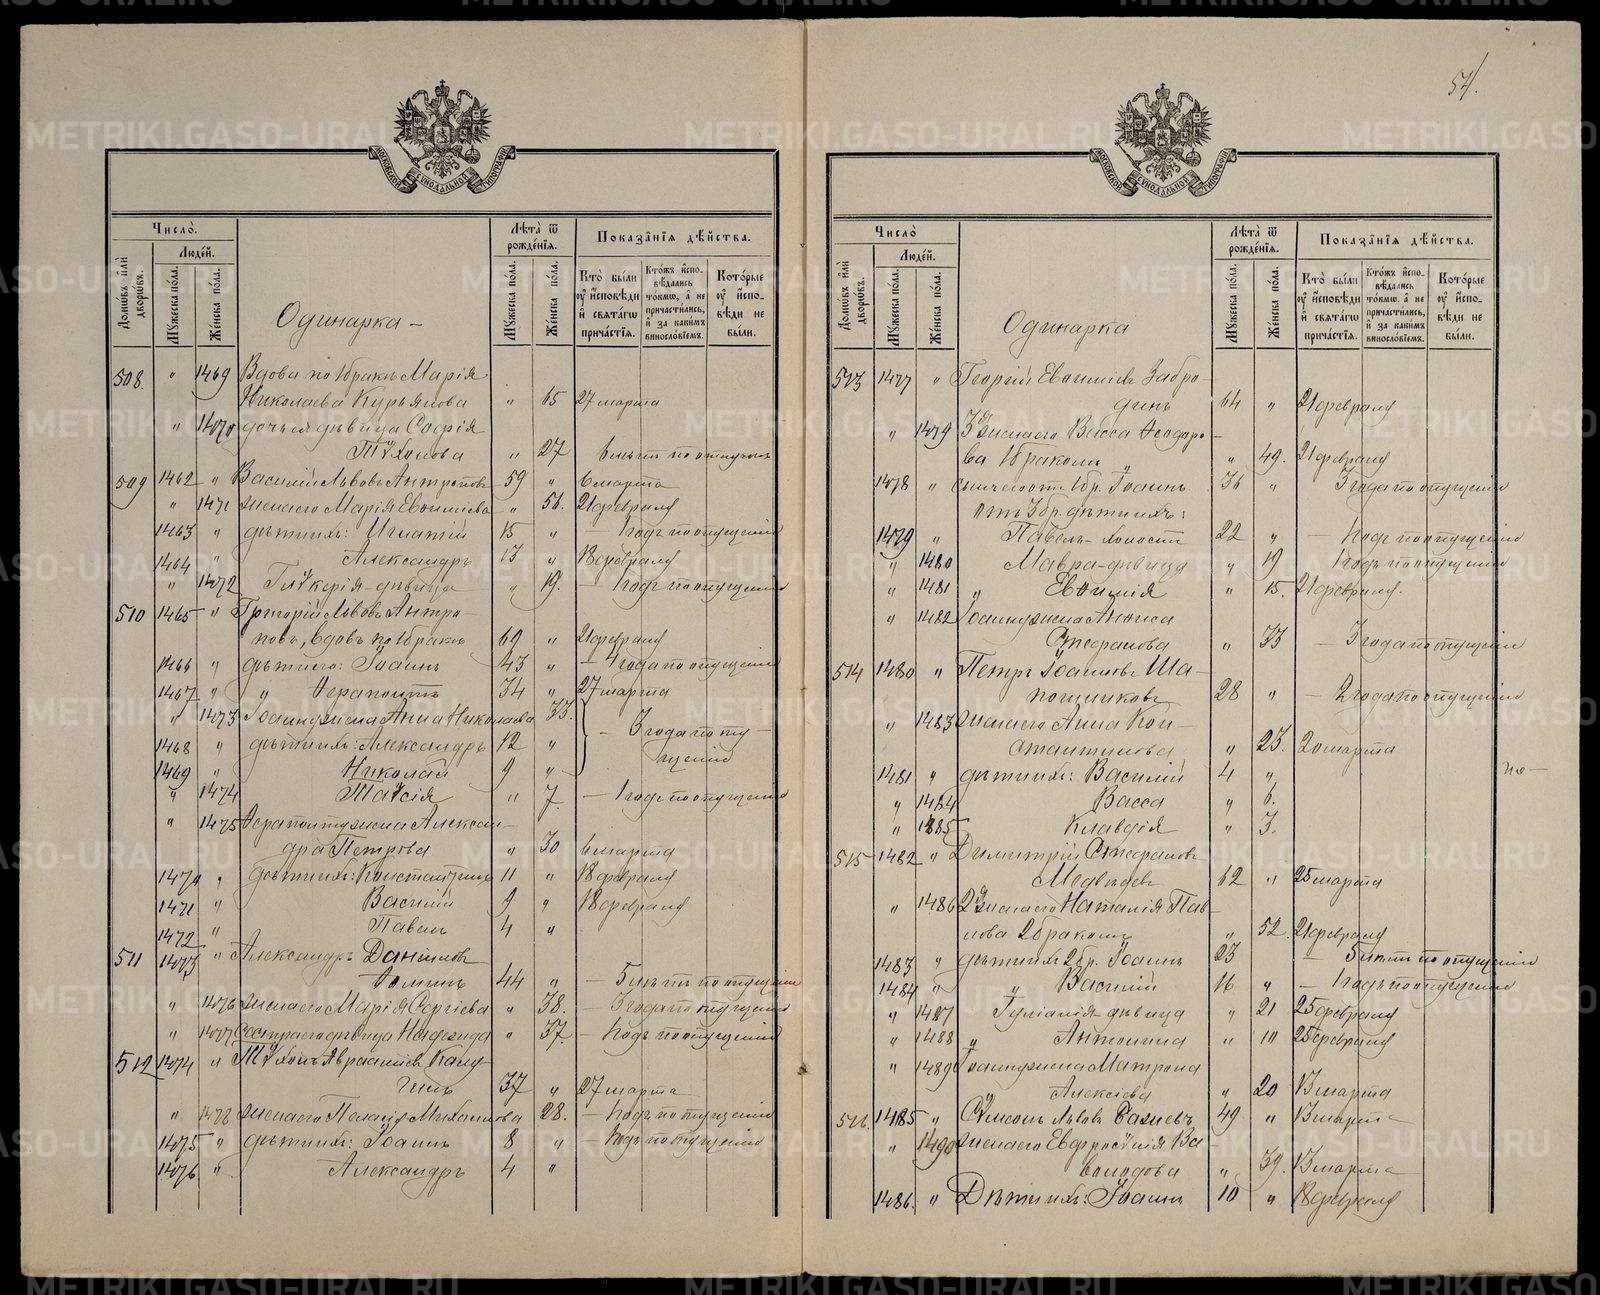 54.
МОСКОВСКОЙ СѴНОДАЛЬНОЙ ТИПОГРАФІИ
Число̀.
Люде́й.
Домѡ́въ и҆лѝ дворѡ́въ.
Мꙋ́жеска по́ла.
Же́нска по́ла.
Одинарка –
Лѣ́та ѿ рожде́нїѧ.
Мꙋ́жеска по́ла.
Же́нска по́ла.
Показа̑нїѧ дѣ́йства.
Кто̀ бы́ли ᲂу҆ и҆сповѣ́ди и҆ свѧта́гѡ прича́стїѧ.
Кто́жъ и҆спо-вѣ́дались то́кмѡ, а҆ не причасти́лись, и҆ за каки́мъ винослові́емъ.
Кото́рые ᲂу҆ и҆спо-вѣ́ди не бы́ли.
508. " 1469 Вдова по 1 бракѣ Марія
Николаева Курьянова " 65 27 марта
" 1470 дочь ея дѣвица Софія
Тѵхонова " 27 6 лѣтъ по опущенію
509 1462 " Василій Львовъ Антроповъ 59 " 6 марта
" 1471 жена его Марія Евѳиміева " 56. 21 февраля
1463 " дѣти ихъ: Игнатій 15 " – 1 годъ по опущенію
1464 " Александръ 13 " 18 февраля
" 1472 Глѵкерія - дѣвица " 19. – 1 годъ по опущенію
510 1465 " Григорій Львовъ Антро-
повъ, вдовъ по 1 бракѣ 69 " 21 февраля
1466 " дѣти его: Іоаннъ 43 " – 4 года по опущенію
1467 " " Ѳерапонтъ 34 " 27 марта
" 1473 Іоанну жена Анна Николаева 33.
1468 " дѣти ихъ: Александръ 12 " – 3 года по опу-
1469 " Николай 9 " щенію
" 1474 Таисія " 7. – 1 годъ по опущенію
" 1475 Ѳерапонту жена Алексан-
дра Петрова " 30 6 марта
1470 " дѣти ихъ: Константинъ 11 " 18 февраля
1471 " Василій 9 " 18 февраля
1472 " Павелъ 4 "
511 1473 " Александръ Даніиловъ
Ѳоминъ 44 " – 5 лѣтъ по опущенію
" 1476 жена его Марія Сергіева " 38. – 3 года по опущенію
" 1477 Сестра его дѣвица Надежда " 37. – 1 годъ по опущенію
512 1474 " Тѵхонъ Авраамовъ Калу-
гинъ 37 " 27 марта
" 1478 жена его Пелагія Михаилова 28. – 1 годъ по опущенію
1475 " дѣти ихъ: Іоаннъ 8 " – 1 годъ по опущенію
1476 " Александръ 4 "
МОСКОВСКОЙ СѴНОДАЛЬНОЙ ТИПОГРАФІИ
Число̀
Люде́й.
Домѡ́въ и҆лѝ дворѡ́въ.
Мꙋ́жеска по́ла.
Же́нска по́ла.
Одинарка
Лѣ́та ѿ рожде́нїѧ.
Мꙋ́жеска по́ла.
Же́нска по́ла.
Показа̑нїѧ дѣ́йства.
Кто̀ бы́ли ᲂу҆ и҆сповѣ́ди и҆ свѧта́гѡ прича́стїѧ.
Кто́жъ и҆спо-вѣ́дались то́кмѡ, а҆ не причасти́лись, и҆ за каки́мъ винослові́емъ.
Кото́рые ᲂу҆ и҆спо-вѣ́ди не бы́ли.
513 1477 " Георгій Евѳиміевъ Забро-
динъ 64 " 21 февраля
" 1479 3 жена его Васса Ѳеодоро-
ва 1 бракомъ " 49. 21 февраля
1478 " сынъ его отъ 1 бр. Іоаннъ 36 " 3 года по опущенію
отъ 3 бр. дѣти ихъ:
1479 " Павелъ - холостъ 22 " – 1 годъ по опущенію
" 1480 Мавра - дѣвица " 19 1 годъ по опущенію
" 1481 " Евѳимія " 15. 21 февраля.
" 1482 Іоанну жена Анѳиса
Стефанова " 33 – 3 года по опущенію
514 1480 " Петръ Іоанновъ Ша-
пошниковъ 28 " – 2 года по опущенію
" 1483 жена его Анна Кон-
стантинова " 23. 20 марта
1481 " дѣти ихъ: Василій 4 " но –
" 1484 Васса " 6.
" 1485 Клавдія " 3.
515 1482 " Димитрій Стефановъ
Медвѣдевъ 62 " 25 марта
" 1486 2 жена его Наталія Пав-
лова 2 бракомъ " 52. 21 февраля
1483 " дѣти ихъ 2 бр. Іоаннъ 23 – 5 лѣтъ по опущенію
1484 " " Василій 16 " – 1 годъ по опущенію
" 1487 Іуліанія - дѣвица " 21 25 февраля
" 1488 " Антонина " 10 25 февраля
" 1489 Іоанну жена Матрона
Алексіева " 20 13 марта
516. 1485 " Сѵмеонъ Львовъ 49 " 13 марта
" 1490 жена его Евфросинія Все-
володова " 39. 13 марта
1486. " Дѣти ихъ: Іоаннъ 10 " 18 февраля
METRIKI.GASO-URAL.RU